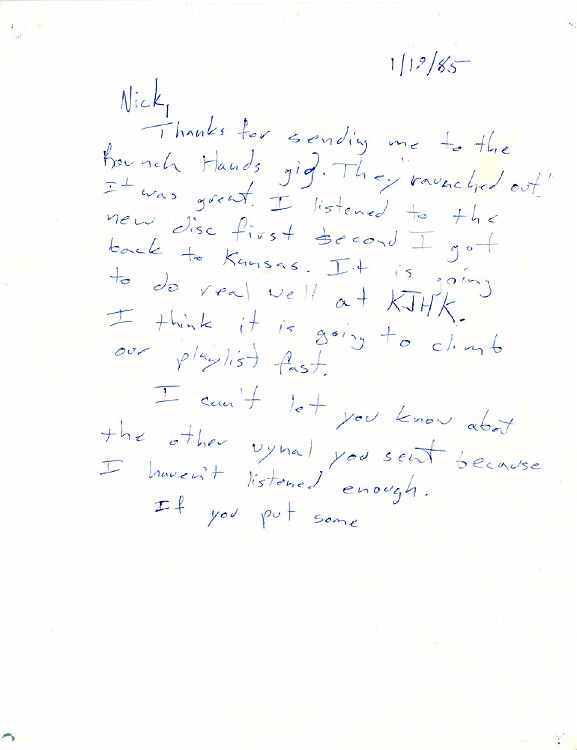 1/19/85
Nick,
Thanks for sending me to the
Raunch Hands gig. They "raunched out"!
It was great. I listened to the
new disc first second I got
back to Kansas. It is going
to do real well at KJHK.
I think it is going to climb
our playlist fast.
I can't let you know about
the other vynal you sent because
I haven't listened enough.
If you put some